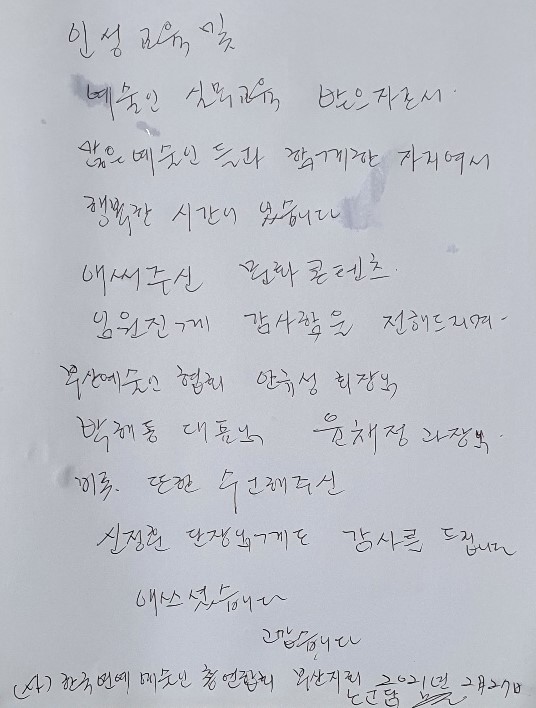 인성교육 및
예술인 실무교육 받은자로서.
많은 예술인 들과 함께한 자리여서
행복한 시간이 였습니다
애써주신 문화 콘텐츠.
임원진께 감사함을 전해드리며.
부산예술인 협회 안휘성 회장님
박해동 대표님 윤채정 과장님.
이루. 또한 수고해주신
신정환 단장님께도 감사를 드립니다
애쓰셨습니다
고맙습니다
(사) 한국연예예술인 총연합회 부산지회 2021년 2月27日